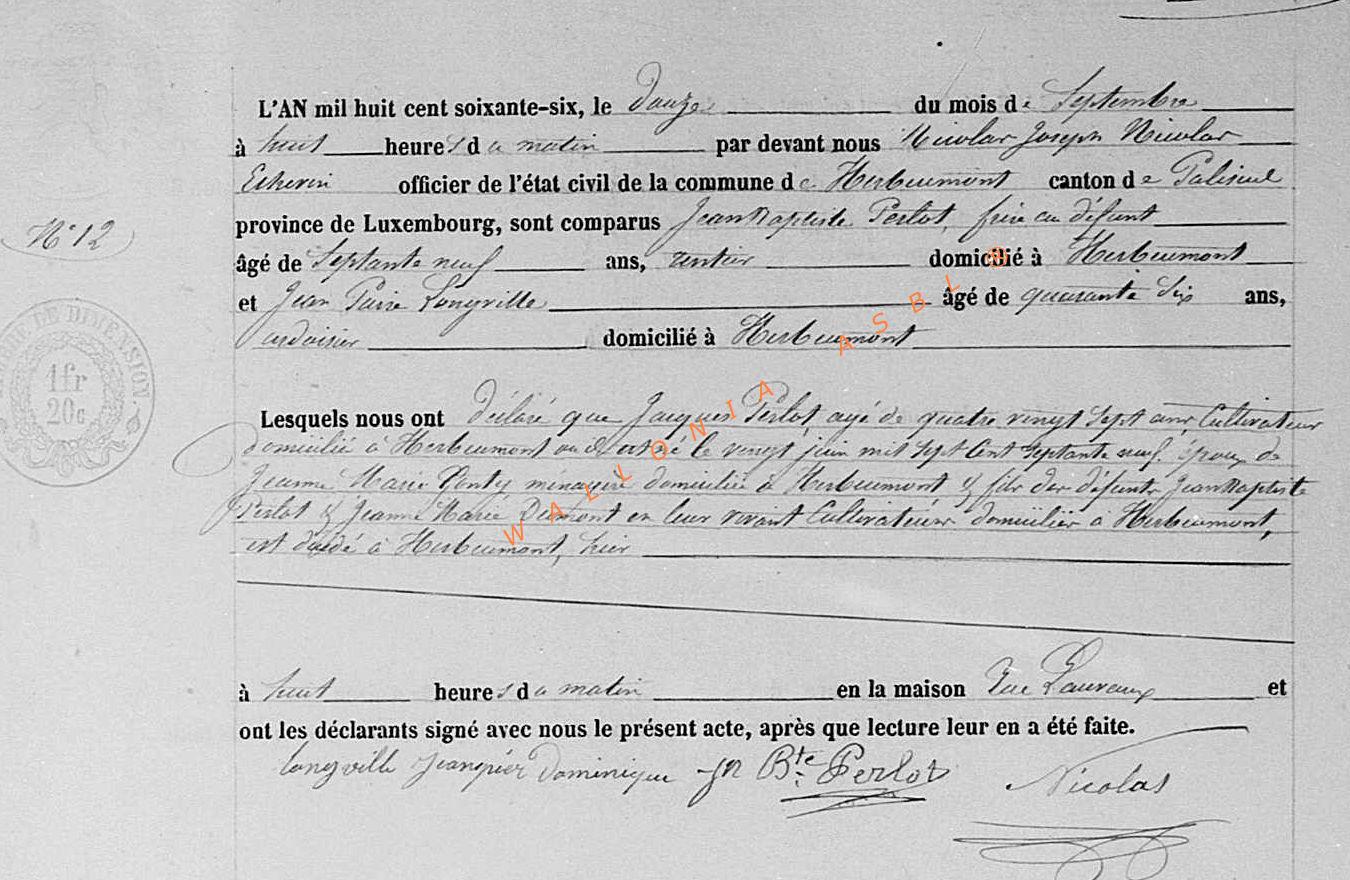 L'AN mil huit cent soixante-six, le Douze du mois de Septembre
à huit heures du matin par devant nous Nicolas Joseph Nicolas
Echevin officier de l'état civil de la commune de Herbeumont canton de Paliseul
province de Luxembourg, sont comparus Jean Baptiste Perlot, frère au défunt
N° 12
âgé de Septante neuf ans, rentier domicilié à Herbeumont
et Jean Pierre Longville âgé de quarante Six ans,
ardoisier domicilié à Herbeumont
DE DIMENSION
1fr
20c
Lesquels nous ont déclaré que Jacques Perlot, agé de quatre vingt Sept ans, Cultivateur
domicilié à Herbeumont où il est né le vingt juin mil Sept Cent Septante neuf. époux de
Jeanne Marie Ponty ménagère domiciliée à Herbeumont & fils des défunts Jean Baptiste
Perlot & Jeanne Marie Dumont en leur vivant Cultivateurs domiciliés à Herbeumont,
est décédé à Herbeumont, hier
à huit heures du matin en la maison Rue Lauvaux et
ont les déclarants signé avec nous le présent acte, après que lecture leur en a été faite.
longville jeanpier Dominique Jn Bte Perlot Nicolas
WALLONIA ASBL ©